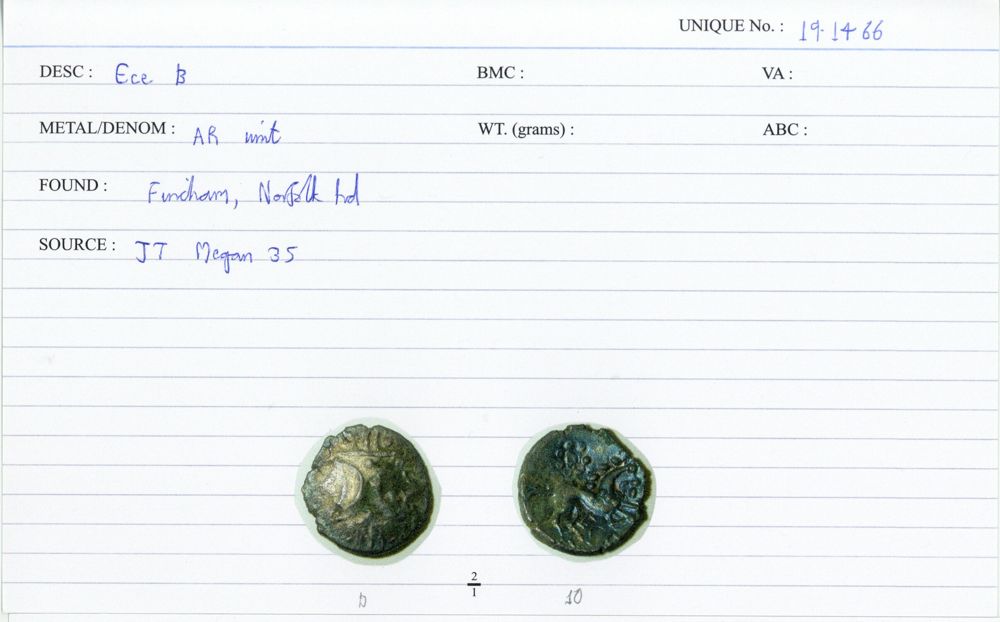 UNIQUE No. : 19.1466
DESC : Ece B BMC : VA :
METAL/DENOM : AR unit WT. (grams) : ABC :
FOUND : Fincham, Norfolk hd
SOURCE : JT Megan 35
2
1
10